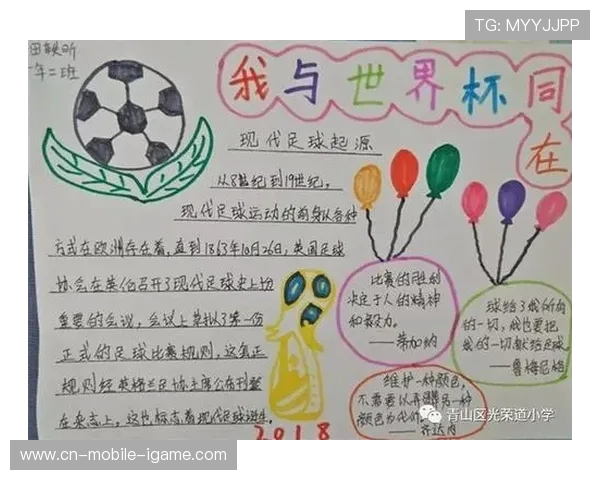 TG: MYYJJPP
年二班
我与世界杯同在
现代足球起源
从8世纪到19世纪,
现代足球运动的前身以各种
方式在欧洲存在着,直到1863年10月26日,英国足球
协会在英伦召开了现代足球史上切
重要的会议,会议上草拟了第一份
正式的足球比赛规则,这套正
规则经英格兰足协主席公布刊登
在杂志上,这也标志着现代足球诞生。
2018
比赛的胜利
决定于人的精神
和毅力。
——蒂加纳
球给了我所有
的一切,我也要把
我的一切献给足球。
——鲁梅尼格
维护一种颜色,
不需要以弄
另一种
颜色为代价
——齐达内
青山区光荣道小学
www-cn-mobile-igame.com